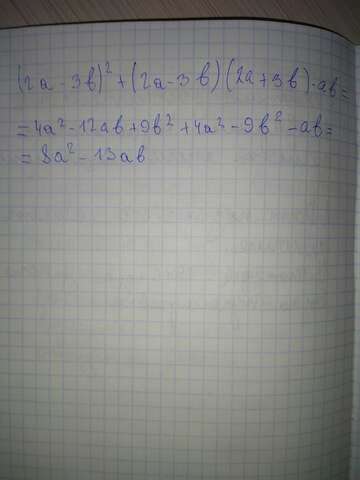 (2a - 3b)² + (2a - 3b)(2a + 3b) - ab =
= 4a² - 12ab + 9b² + 4a² - 9b² - ab =
= 8a² - 13ab